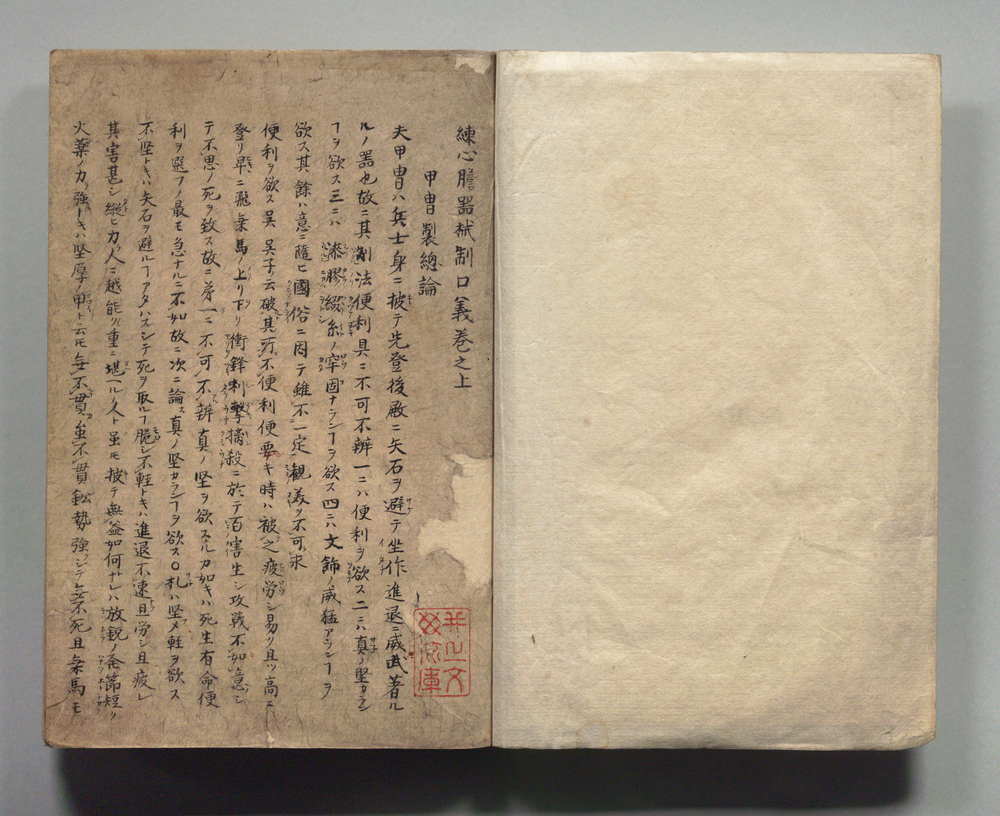 練心膽器械制口義巻之上
甲冑製總論
夫甲冑ハ兵士身ニ披テ先登後殿ニ矢石ヲ避テ坐作進退ニ威武著ル
ルノ器也故ニ其制法便利具ニ不可不辨一ニハ便利ヲ欲ス二ニハ真ノ堅カラン
ヿヲ欲ス三ニハ漆膠綴絲ノ牢固ナランヿヲ欲ス四ニハ文飾ノ威猛アランヿヲ
欲ス其餘ハ意ニ隨ヒ國俗ニ因テ雖不一定觀美ヲ不可求
便利ヲ欲ス 呉子ニ云破其所不便利便要キ時ハ被之疲労シ易ク且ツ高ニ
登リ早ニ飛乗馬ノ上リ下リ衝鋒刺擊擒殺ニ於テ百害生シ攻戦不如意シ
テ不思ノ死ヲ致ス故ニ第一ニ不可不辨真ノ堅ヲ欲スル力如キハ死生有命便
利ヲ選フノ最モ急ナルニ不如故ニ次ニ論ス真ノ堅カランヿヲ欲ス〇札ハ堅メ軽ヲ欲ス
不堅トキハ矢石ヲ避ルヿアタハスシテ死ヲ取ルヿ脆シ不軽トキハ進退不速且労シ且疲レ
其害甚シ縦ヒ力人ニ越能ク重ニ堪ヘル人ト虽モ披テ無益如何ナレハ放鋭ノ
火薬ノ力強トキハ堅厚ノ甲ト云モ無不貫虽不貫鉛勢強シテ無不死且乗馬モ